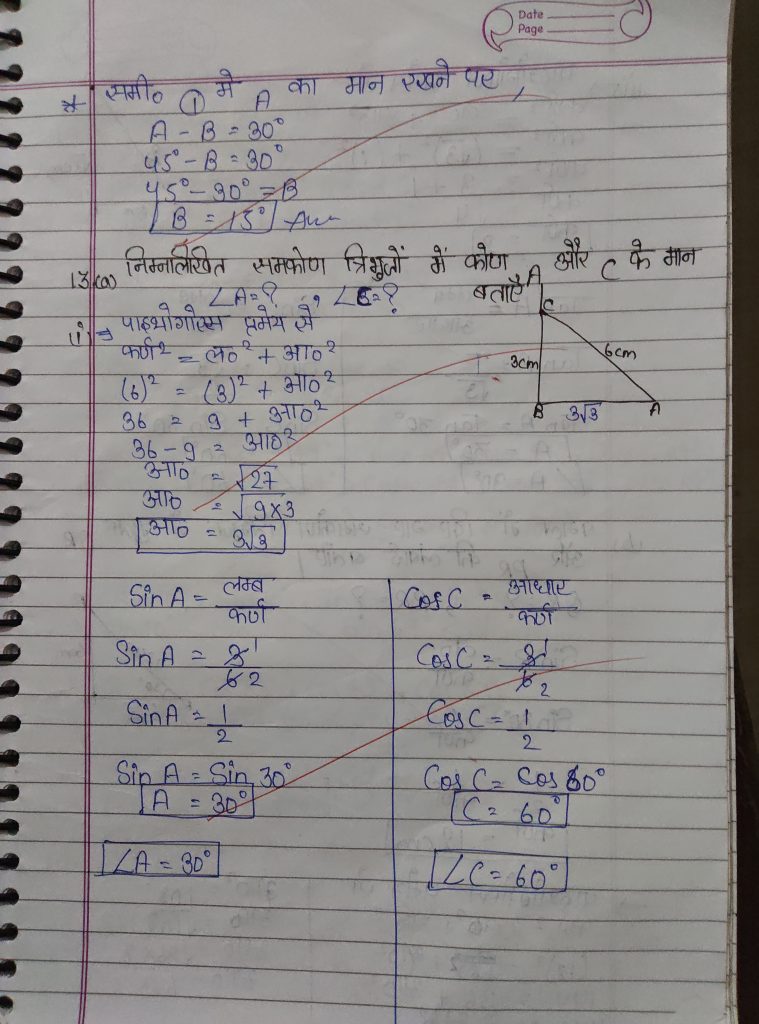 Date
Page
* समी० ① में A का मान रखने पर,
A - B = 30°
45° - B = 30°
45° - 30° = B
B = 15° Ans
13(a) निम्नलिखित समकोण त्रिभुजों में कोण A और C के मान बताएँ
∠A = ?, ∠C = ?
(i) ⇒ पाइथागोरस प्रमेय से
कर्ण² = ल०² + आ०²
(6)² = (3)² + आ०²
36 = 9 + आ०²
36 - 9 = आ०²
आ० = √27
आ० = √9×3
आ० = 3√3
C
3cm
6cm
B
3√3
A
Sin A = लम्ब/कर्ण
Sin A = 3 1/6 2
Sin A = 1/2
Sin A = Sin 30°
A = 30°
∠A = 30°
Cos C = आधार/कर्ण
Cos C = 3 1/6 2
Cos C = 1/2
Cos C = Cos 60°
C = 60°
∠C = 60°